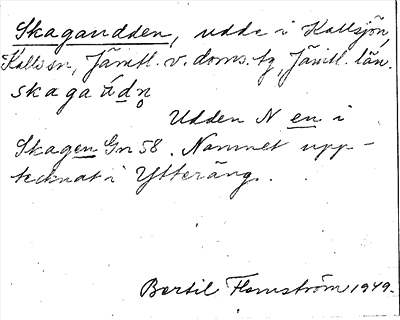 Skagaudden, udde i Kallsjön,
Kalls sn, Jämtl. v. doms. tg, Jämtl. län.
skaga ùdn̥
Udden N en i
Skagen Gn 58. Namnet upp-
tecknat i Ytteräng.
Bertil Flemström 1949.